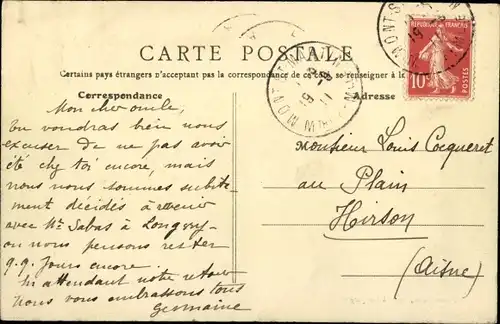 CARTE POSTALE
Certains pays étrangers n'acceptant pas la correspondance de ce côté, se renseigner à la
Correspondance
Adresse
RÉPUBLIQUE FRANÇAISE
10
Mon cher oncle,
Tu voudras bien nous
excuser de ne pas avoir
été chez toi encore, mais
nous nous sommes subite-
ment décidés à revenir
avec Mr Sabas à
on nous pensons rester
q.q. jours encore.
En attendant notre retour
Nous vous embrassons tous
Germaine
Monsieur Louis Cocqueret
au Plain
Hirson
(Aisne)